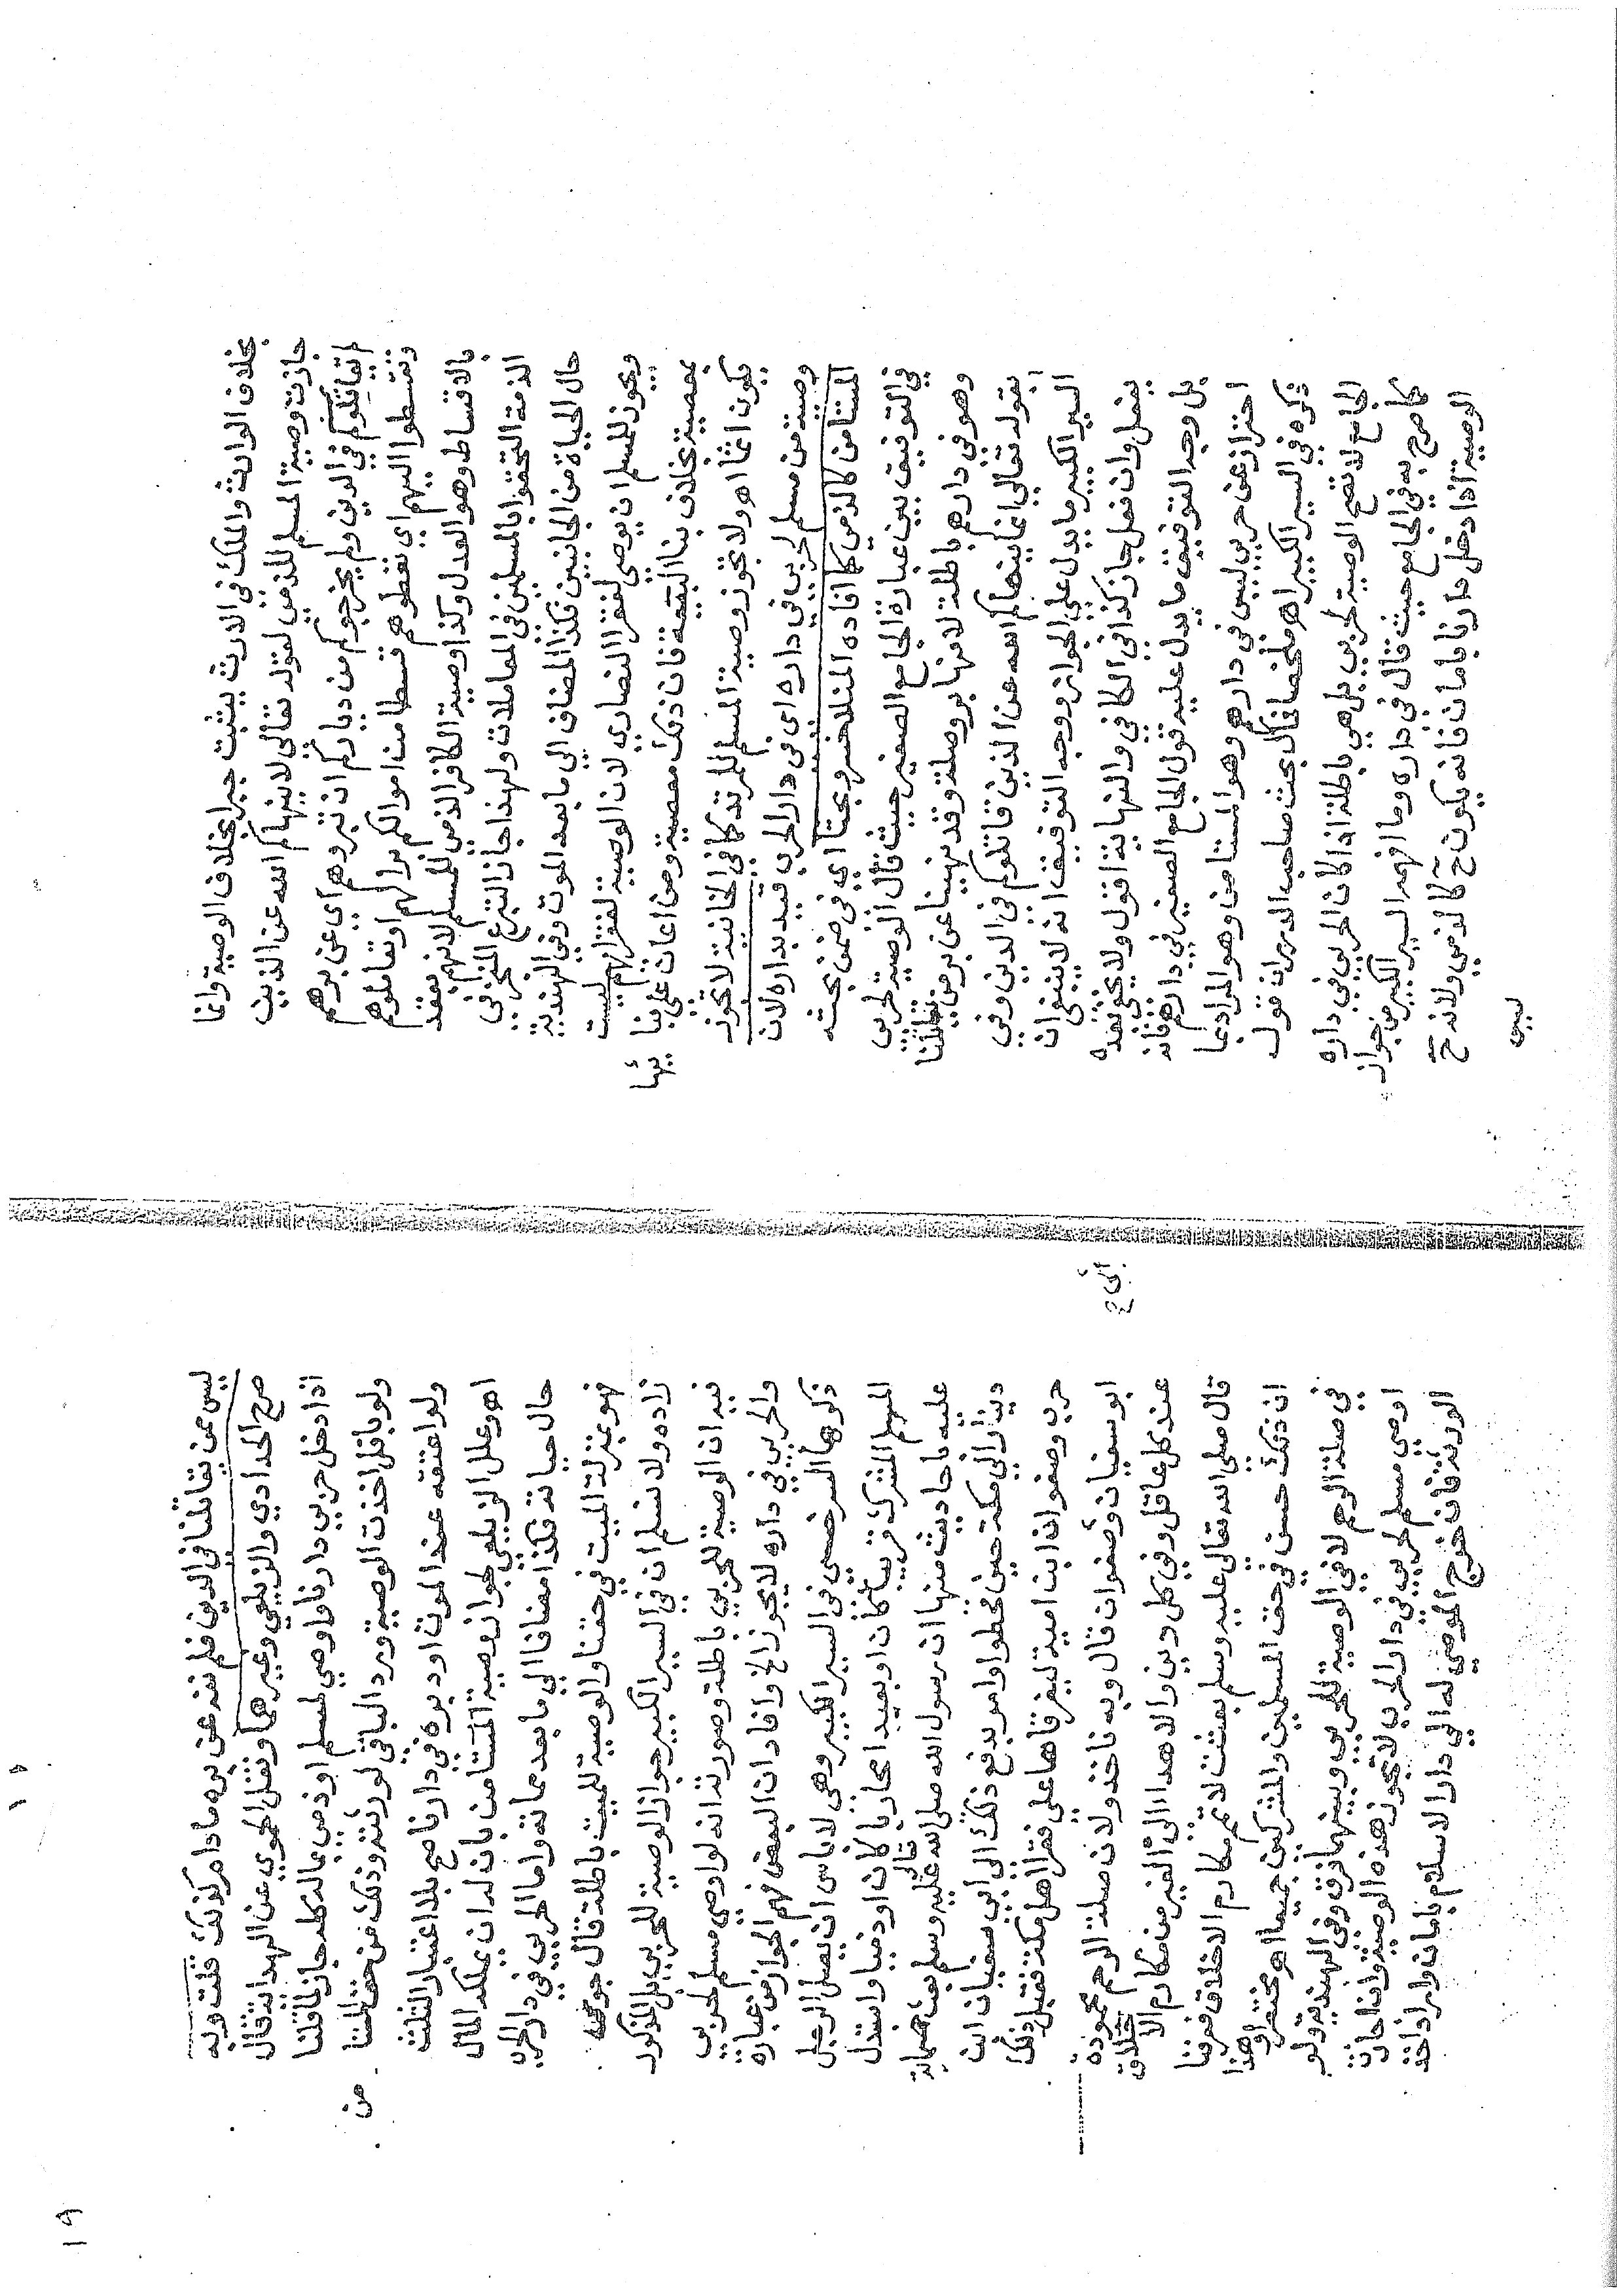 بخلاف الوارث والملك في الارث يثبت جبرا بخلاف الوصية وانما
جازت وصية المسلم للذمي لقوله تعالى لا ينهاكم الله عن الذين
لم يقاتلوكم في الدين ولم يخرجوكم من دياركم ان تبروهم اي عن برهم
وتقسطوا اليهم اي تعطوهم قسطا من اموالكم برا لهم او تعاملوهم
بالاقساط وهو العدل وكذا وصية الكافر الذمي للمسلم لانهم بعقد
الذمة التحقوا بالمسلمين في المعاملات ولهذا جاز التبرع المنجز في
حال الحياة من الجانبين فكذا المضاف الى ما بعد الموت وفي الهندية
ويجوز للمسلم ان يوصي لفقرا النصاري لان الوصية لفقرائهم ليست
بمعصية بخلاف بنا البيعة فان ذلك معصية ومن اعان على بنائها
يكون اثما اهـ ولا تجوز وصية المسلم للمرتد كما في الخانية لا تجوز
وصية من مسلم لحربي في داره اي في دار الحرب قيد بداره لان
المستامن كالذمي كما افاده المنلا خسرو بحثا اي في ضمن بحثه
في التوفيق بين عبارة الجامع الصغير حيث قال الوصية لحربي
وهو في دارهم باطلة لانها بر وصلة وقد نهينا عن بر من يقاتلنا
بقوله تعالى انما ينهاكم الله عن الذين قاتلوكم في الدين وفي
السير الكبير ما يدل على الجواز ووجه التوفيق انه لا ينبغي ان
يفعل وان فعل جاز كذا في الكافي والنهاية اقول ولا يخفى بعده
بل وجه التوفيق ما يدل عليه قول الجامع الصغير في دارهم فانه
احتراز عن حربي ليس في دارهم وهو المستامن وهو المراد بما
ذكره في السير الكبير اهـ ملخصا قال بحث صاحب الدرر ان قول
الجامع لا تصح الوصية لحربي بل هي باطلة اذا كان الحربي في داره
كما صرح به في الجامع حيث قال في داره وما افهمه السير الكبير من جواز
الوصية اذا دخل دارنا بامان فانه يكون ح كالذمي ولانه ح
ليس
ليس ممن يقاتلنا في الدين فلم ننه عن بره ما دام كذلك قلت وبه
صرح الحدادي والزيلعي وغيرهما ونقل الحموي عن الهداية قال
اذا دخل حربي دارنا فاوصي لمسلم او ذمي بماله كله جاز لما قلنا
ولو باقل اخذت الوصية ويرد الباقي لورثته وذلك من حق المستامن
ولو اعتقه عند الموت او دبره في دارنا صح بلا اعتبار الثلث
اهـ وعلل الزيلعي لجواز وصية المستامن بان له ان يملكه المال
حال حياته فكذا مضافا الي ما بعد مماته واما الحربي في دار الحرب
فهو بمنزلة الميت في حقنا والوصية للميت باطلة قال جوي
زاده ولا نسلم ان في السير الكبير جواز الوصية للحربي بل المذكور
فيه ان الوصية للحربي باطلة وصورته انه لو اوصي مسلم لحربي
والحربي في داره لا يجوز الخ وافاد ان البعض فهم الجواز من عبارة
ذكرها السرخسي في السير الكبير وهي لا باس ان يصل الرجل
المسلم المشرك قريبا كان او بعيدا محاربا كان او ذميا واستدل
عليه باحاديث منها ان رسول الله صلى الله عليه وسلم بعث خمسماية
دينار الي مكة حين قحطوا وامر بدفع ذلك الى ابي سفيان ابن
حرب وصفوان ابن امية ليفرقاها على فقرا اهل مكة فقبل ذلك
ابو سفيان وصفوان قال وبه ناخذ ولان صلة الرحم محمودة
عند كل عاقل وفي كل دين والاهدا الى الغير من مكارم الاخلاق
قال صلى الله تعالى عليه وسلم بعثت لاتمم مكارم الاخلاق فعرفنا
ان ذلك حسن في حق المسلمين والمشركين جميعا اهـ مختصرا وهذا
في صلة الرحم لا في الوصية للحربي وبينهما فرق وفي الهندية ولو
اوصي مسلم لحربي في دار الحرب لا تجوز هذه الوصية وان اجازت
الورثة فان خرج الموصي له الي دار الاسلام بامان واراد اخذ
١٩